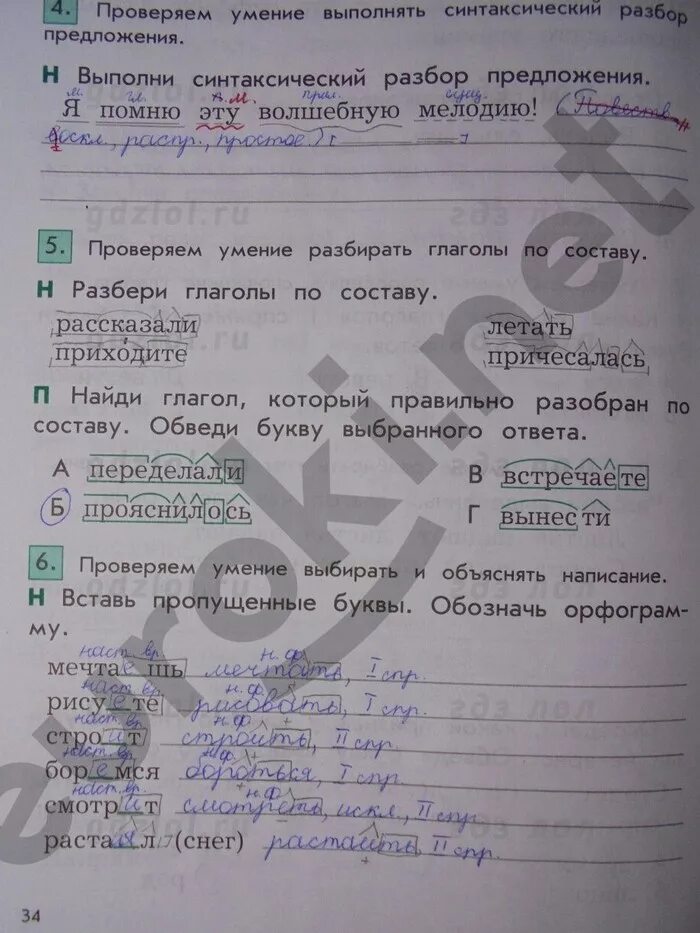 4. Проверяем умение выполнять синтаксический разбор
предложения.
Н Выполни синтаксический разбор предложения.
м. гл. л.м. прил. сущ.
Я помню эту волшебную мелодию! (Повеств.
воскл., распр., простое.)
5. Проверяем умение разбирать глаголы по составу.
Н Разбери глаголы по составу.
рассказали летать
приходите причесалась
П Найди глагол, который правильно разобран по
составу. Обведи букву выбранного ответа.
А переделали В встречаете
Б прояснилось Г вынести
6. Проверяем умение выбирать и объяснять написание.
Н Вставь пропущенные буквы. Обозначь орфограм-
му.
наст. вр. н.ф.
мечтаешь мечтать, I спр.
наст. вр. н.ф.
рисуете рисовать, I спр.
наст. вр. н.ф.
строит строить, II спр.
наст. вр. н.ф.
боремся бороться, I спр.
наст. вр. н.ф.
смотрит смотреть, искл., II спр.
растаял (снег) растаить, II спр.
34
gdzlol.ru
euroki.net